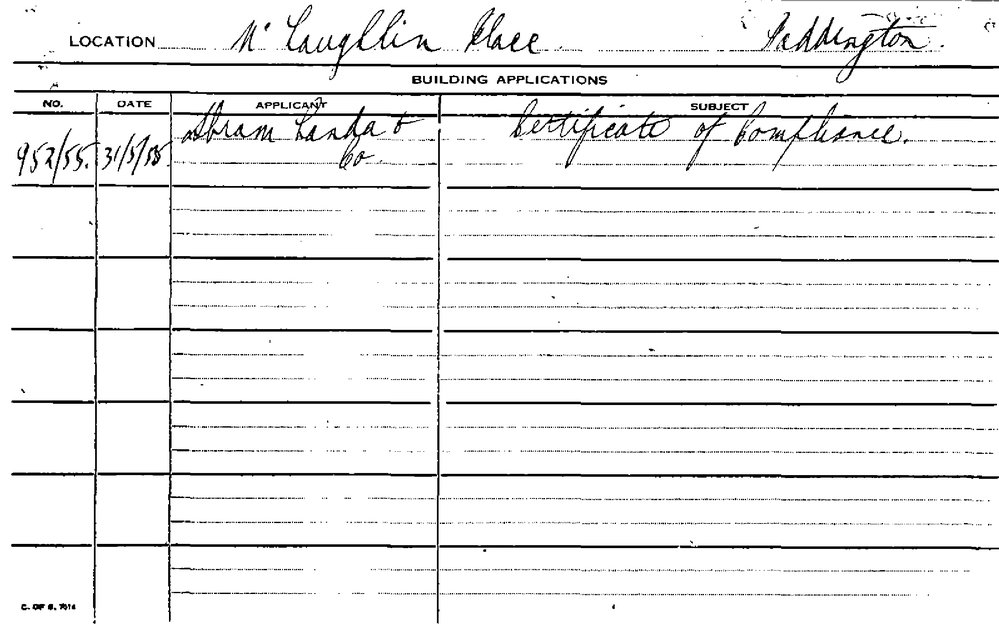 LOCATION Mc Laughlin Place Paddington.
BUILDING APPLICATIONS
NO. DATE APPLICANT SUBJECT
952/55. 31/5/55. Abram Landa & Certificate of Compliance.
Co.
C. OF S. 7014